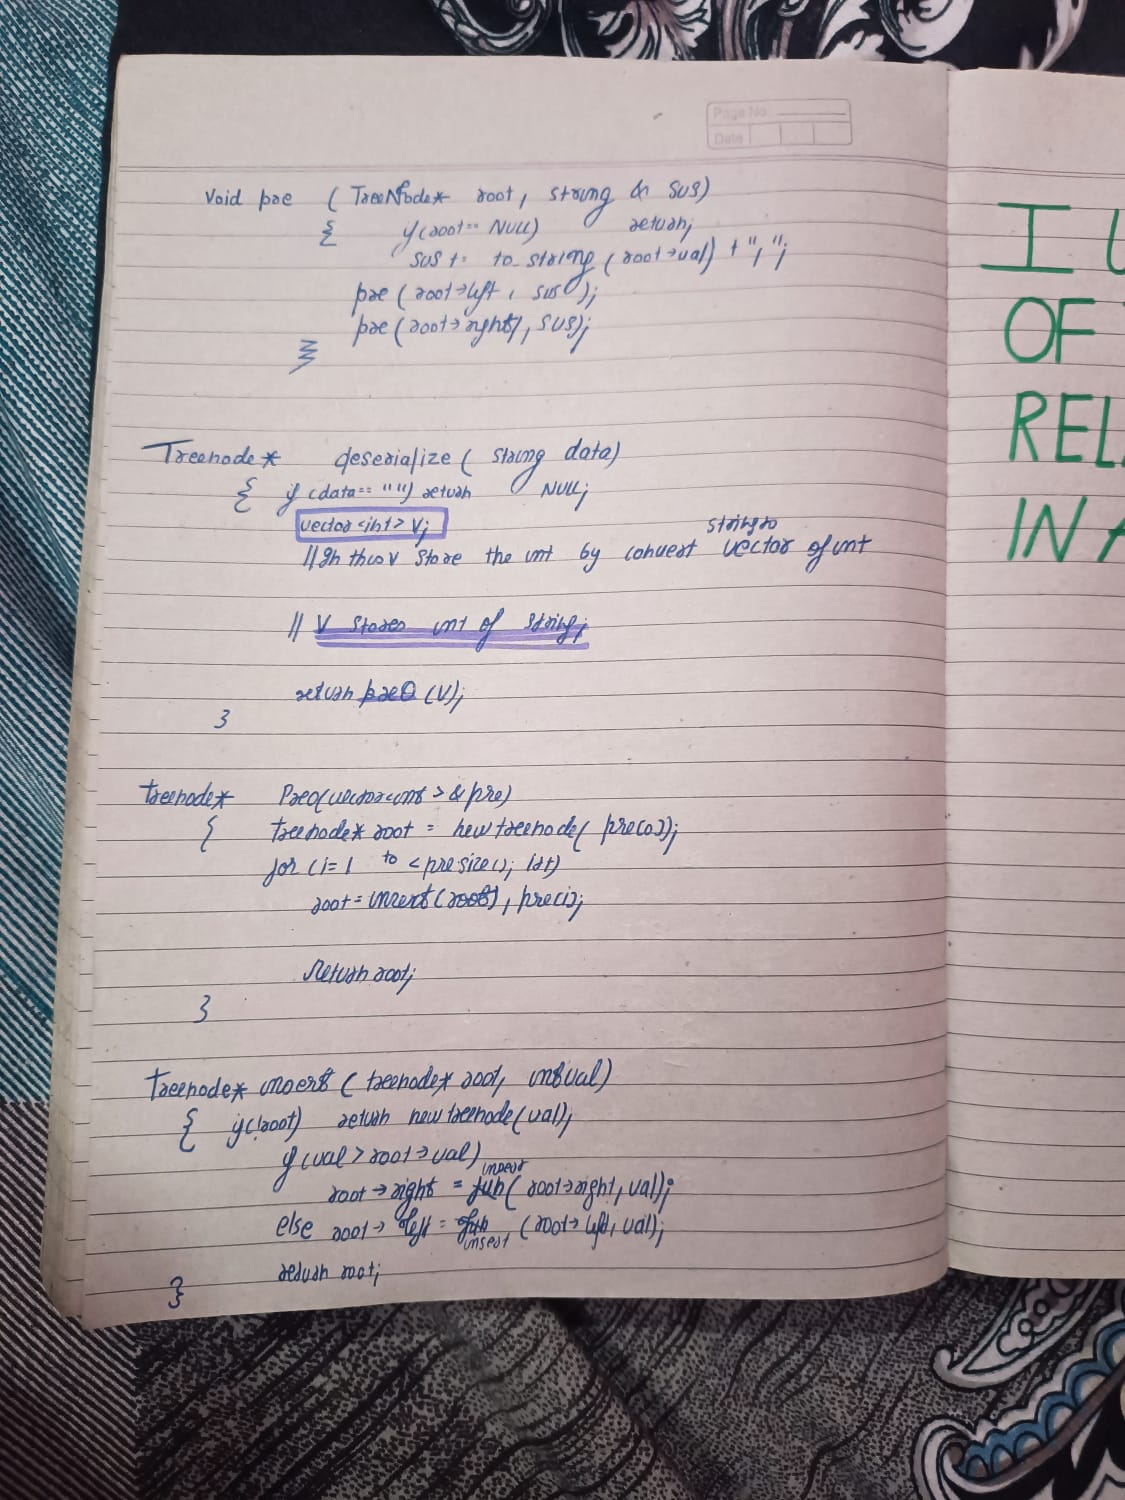 Page No.
Date
Void pre ( TreeNode* root, string & sus)
{ if(root== NULL) return;
sus += to_string (root->val) + ",";
pre ( root->left, sus );
pre (root->right), sus);
}
Treenode* deserialize ( string data)
{ if (data== "") return NULL;
vector <int> V;
string to
//In this V store the int by convert vector of int
// V stores int of string;
return preO (V);
}
treenode* PreO(vector<int> & pre)
{ treenode* root = new treenode( pre[0]);
for (i=1 to < pre size(); i++)
root = insert (root), pre[i];
Return root;
}
Treenode* insert ( treenode* root, int val)
{ if(!root) return new treenode(val);
if (val > root->val)
insert
root -> right = fun( root->right, val);
else root -> left = fun (root-> left, val);
insert
return root;
}
I
OF
REL
IN A